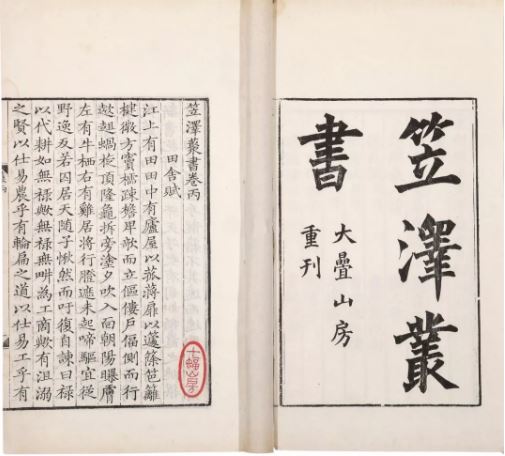 笠澤叢
書
大疊山房
重刊
笠澤叢書卷丙
田舍賦
江上有田田中有廬屋以菰蔣扉以籧篨笆籬
楗微方竇櫺疎檐卑欹而立傴僂戶偪側而行
趑趄蝸旋頂隆龜拆旁塗夕吹入面朝陽曝膚
左有牛栖右有雞居將行遮未起啼驅宜從
野逸反若囚居天隨子愀然而吁復自諫曰祿
以代耕如無祿歟無祿無畊為工商歟有沮溺
之賢以仕易農乎有輪扁之道以仕易工乎有